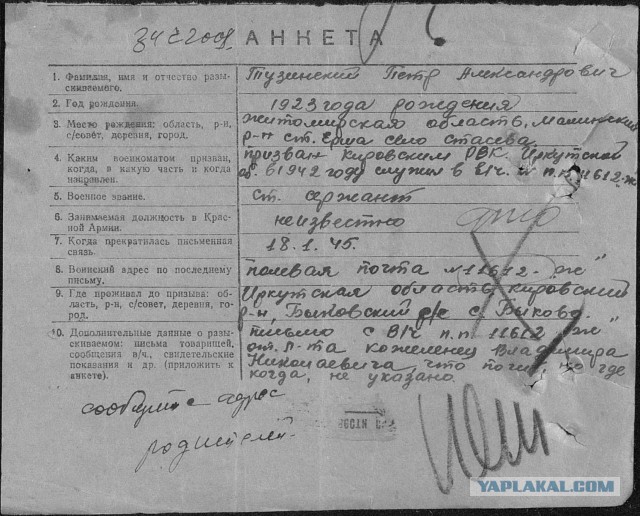 АНКЕТА
1. Фамилия, имя и отчество разы-
скиваемого.
Тузинский Петр Александрович
2. Год рождения.
1923 года рождения
3. Место рождения: область, р-н,
с/совет, деревня, город.
житомирская область, Малинский
р-н ст. Ирша село Стасева
4. Каким военкоматом призван,
когда, в какую часть и когда
направлен.
призван Кировским РВК. Иркутской
об. в 1942 году служил в в/ч. п.п. 11612-ж
5. Военное звание.
ст. сержант
6. Занимаемая должность в Крас-
ной Армии.
неизвестно
7. Когда прекратилась письменная
связь.
18.1.45.
8. Воинский адрес по последнему
письму.
полевая почта № 11612-"ж"
9. Где проживал до призыва: об-
ласть, р-н, с/совет, деревня, го-
род.
Иркутская область, Кировский
р-н, Быковский с/с с. Быково.
10. Дополнительные данные о разы-
скиваемом: письма товарищей,
сообщения в/ч., свидетельские
показания и др. (приложить к
анкете).
письмо с в/ч п.п 11612 "ж"
от л-та Владимира
Николаевича, что погиб, но где
когда, не указано.
сообщите адрес
родителей.
YAPLAKAL.COM